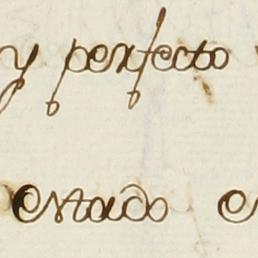 y perfecto
estado